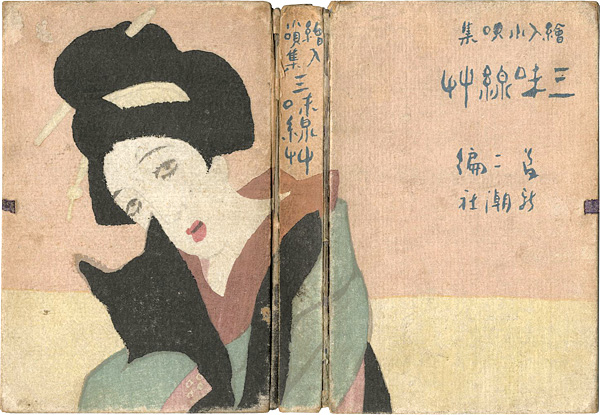 繪入小唄集
三味線艸
夢二編
新潮社
繪入
唄集
三味線艸